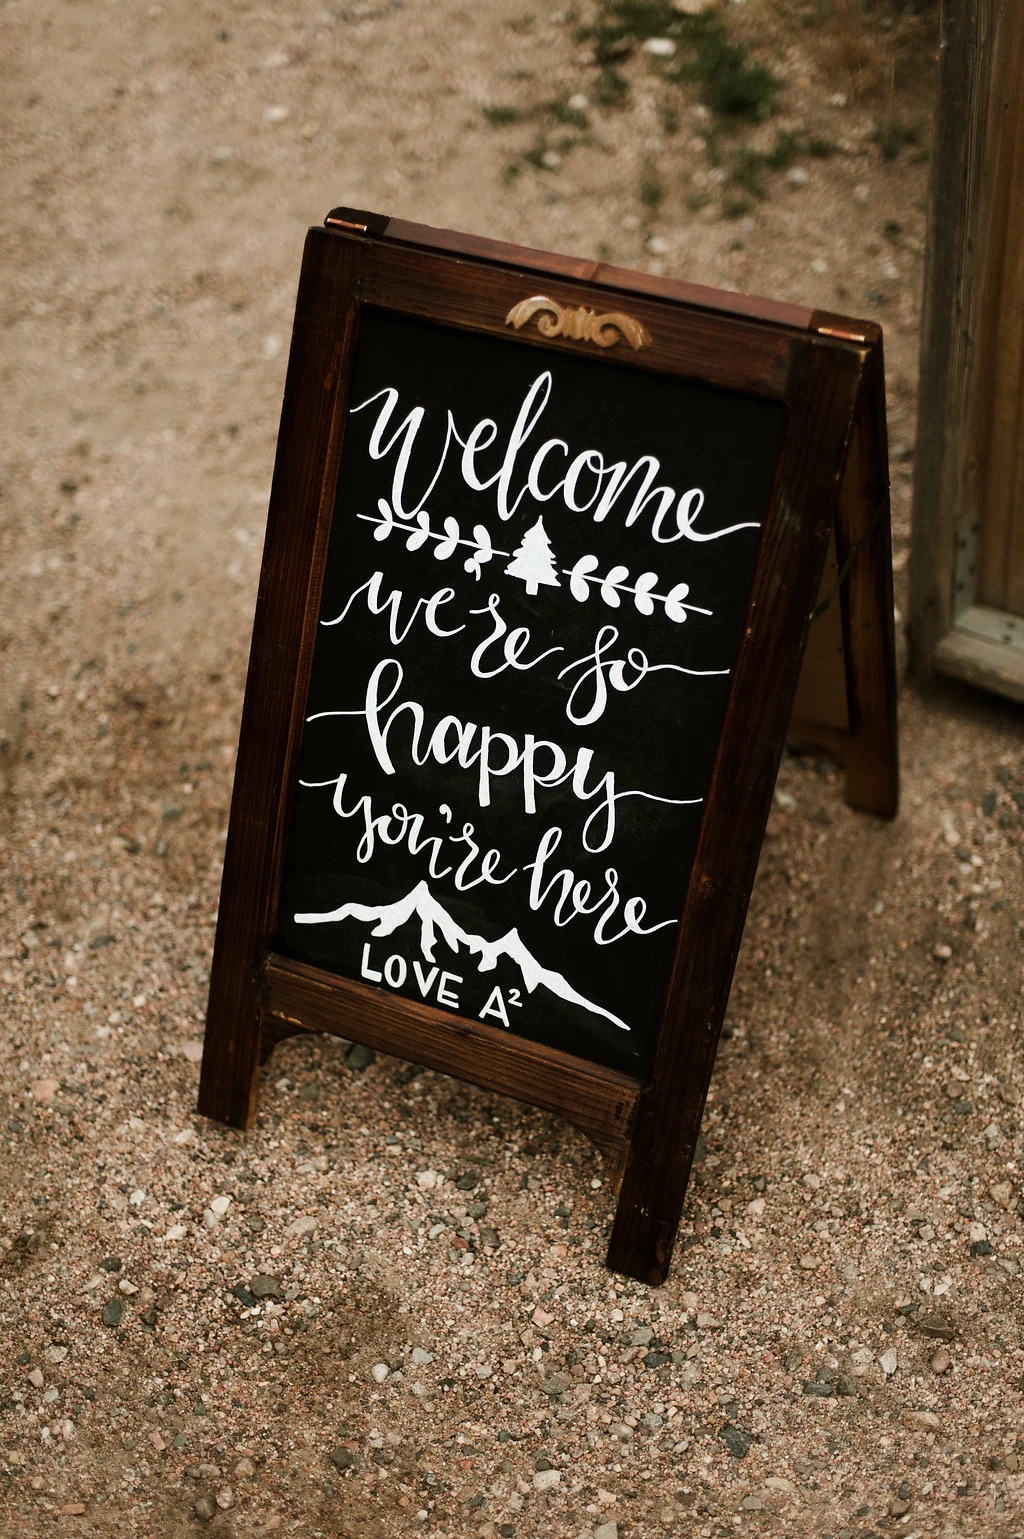 welcome
we're so
happy
you're here
LOVE A²